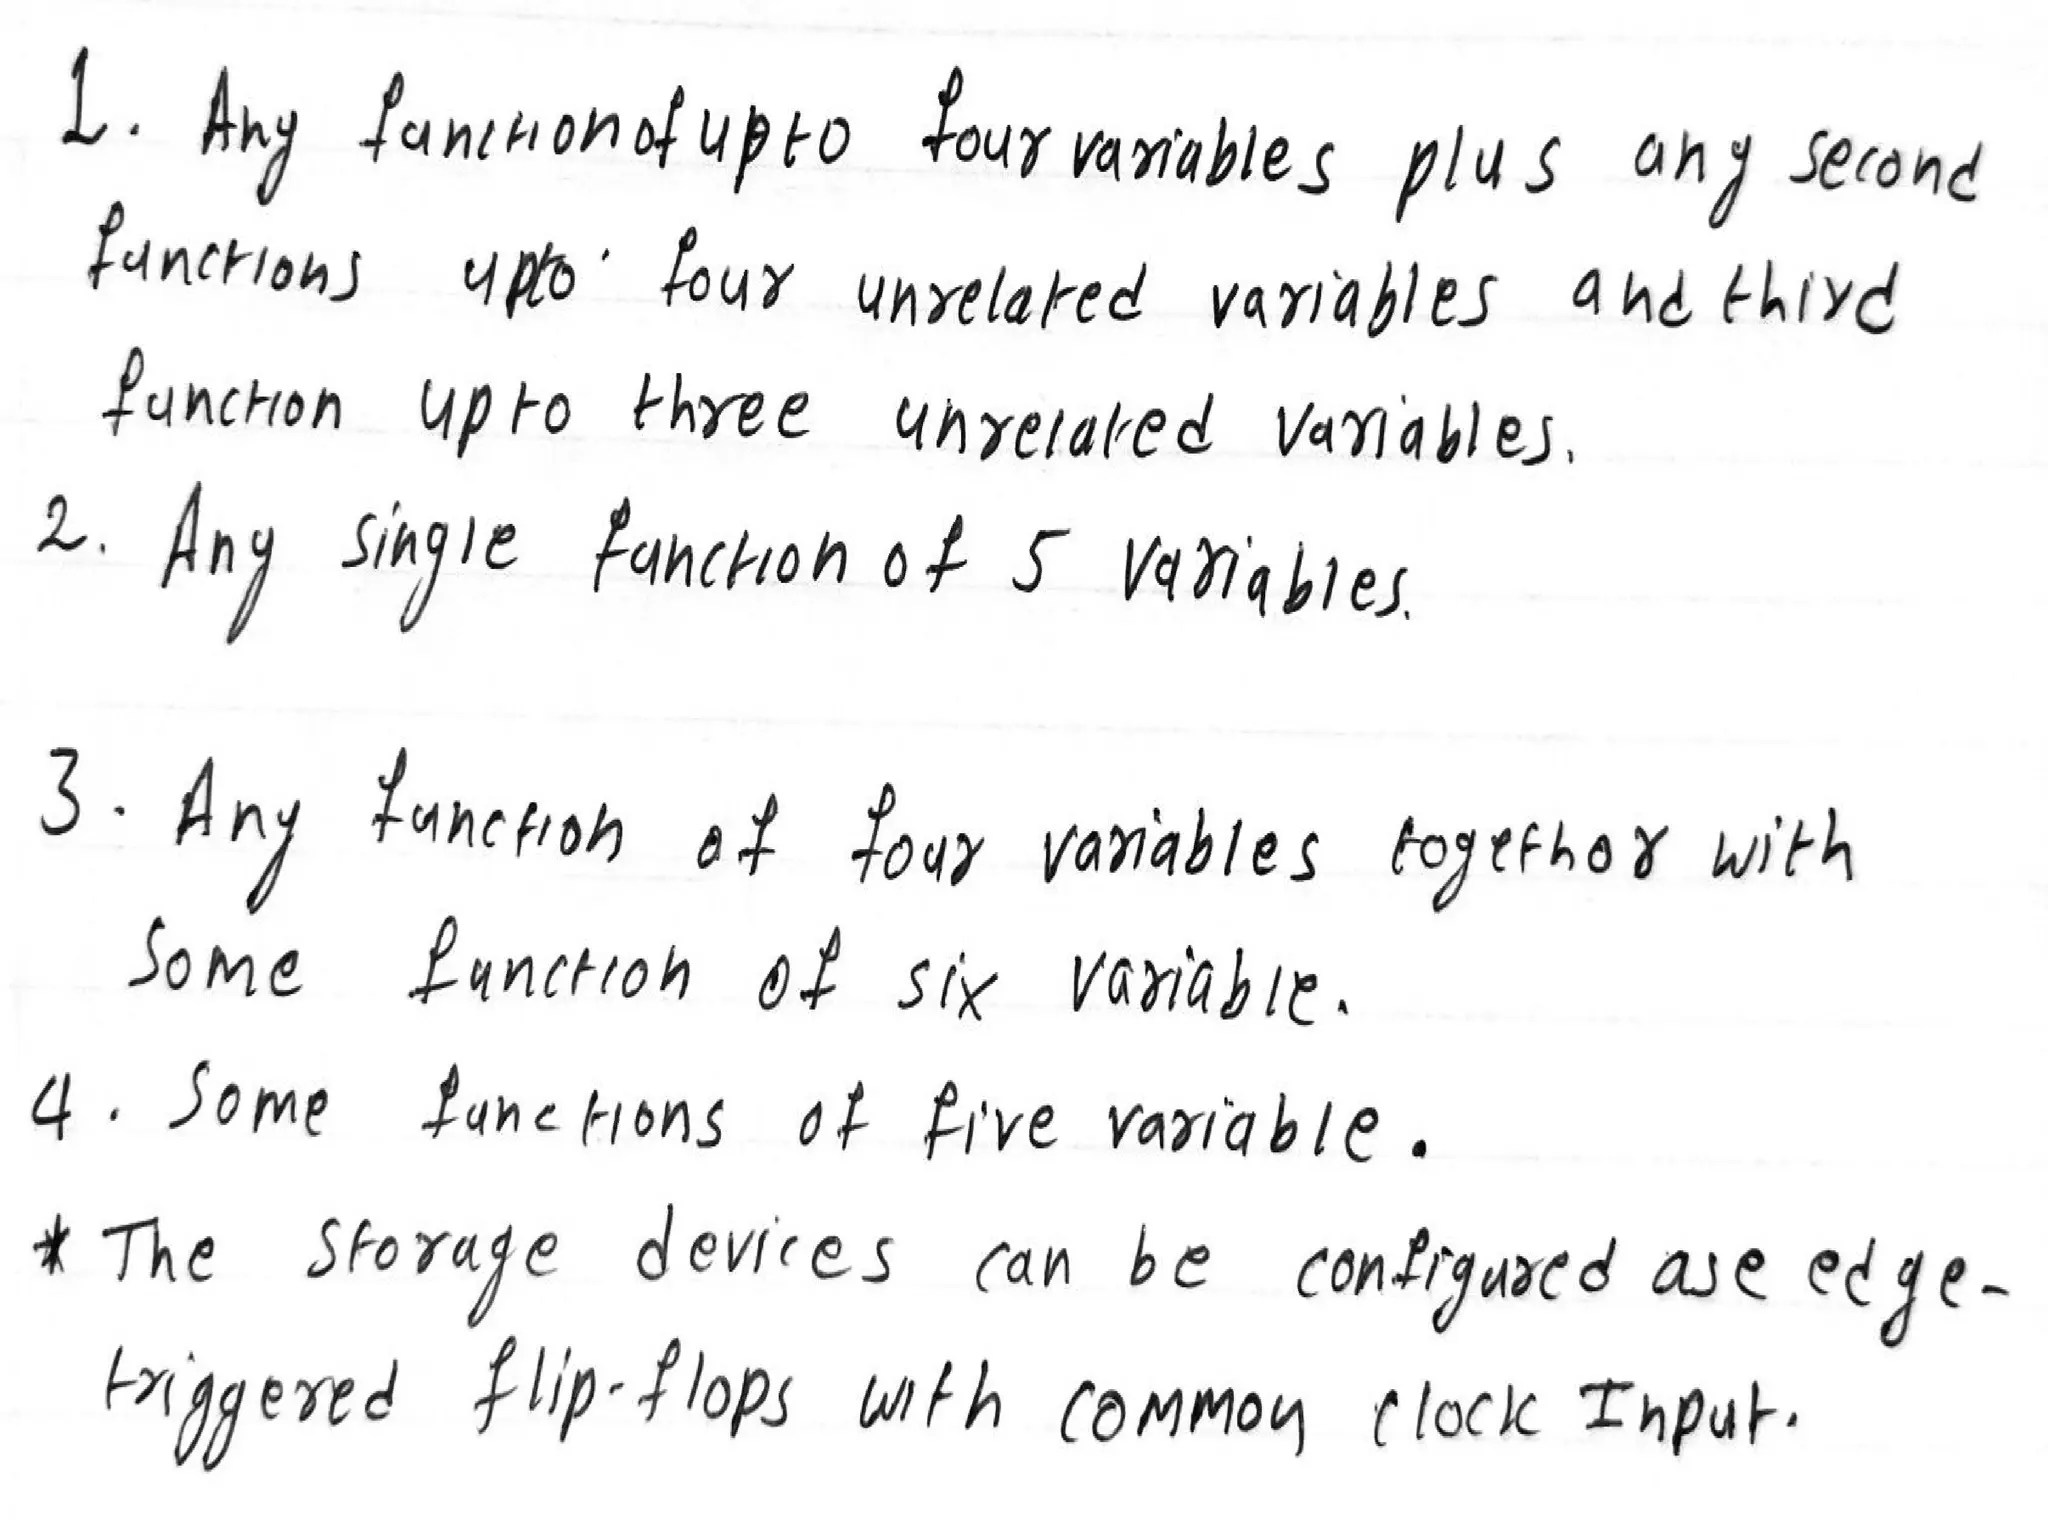 1. Any function of upto four variables plus any second
functions upto four unrelated variables and third
function upto three unrelated variables.
2. Any single function of 5 variables.
3. Any function of four variables togethor with
Some function of six variable.
4. Some functions of five variable.
* The storage devices can be configured ase edge-
triggered flip-flops with common clock Input.